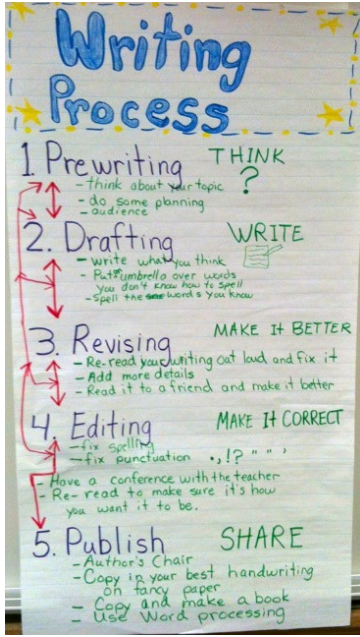 Writing
Process
1. Prewriting THINK
- think about your topic ?
- do some planning
- audience
2. Drafting WRITE
- write what you think
- Put umbrello over words
you don't know how to spell
- Spell the words you know
3. Revising MAKE IT BETTER
- Re-read your writing out loud and fix it
- Add more details
- Read it to a friend and make it better
4. Editing MAKE IT CORRECT
- fix spelling
- fix punctuation . , ! ? " " '
- Have a conference with the teacher
- Re-read to make sure it's how
you want it to be.
5. Publish SHARE
- Author's Chair
- Copy in your best handwriting
on fancy paper
- Copy and make a book
- Use Word processing